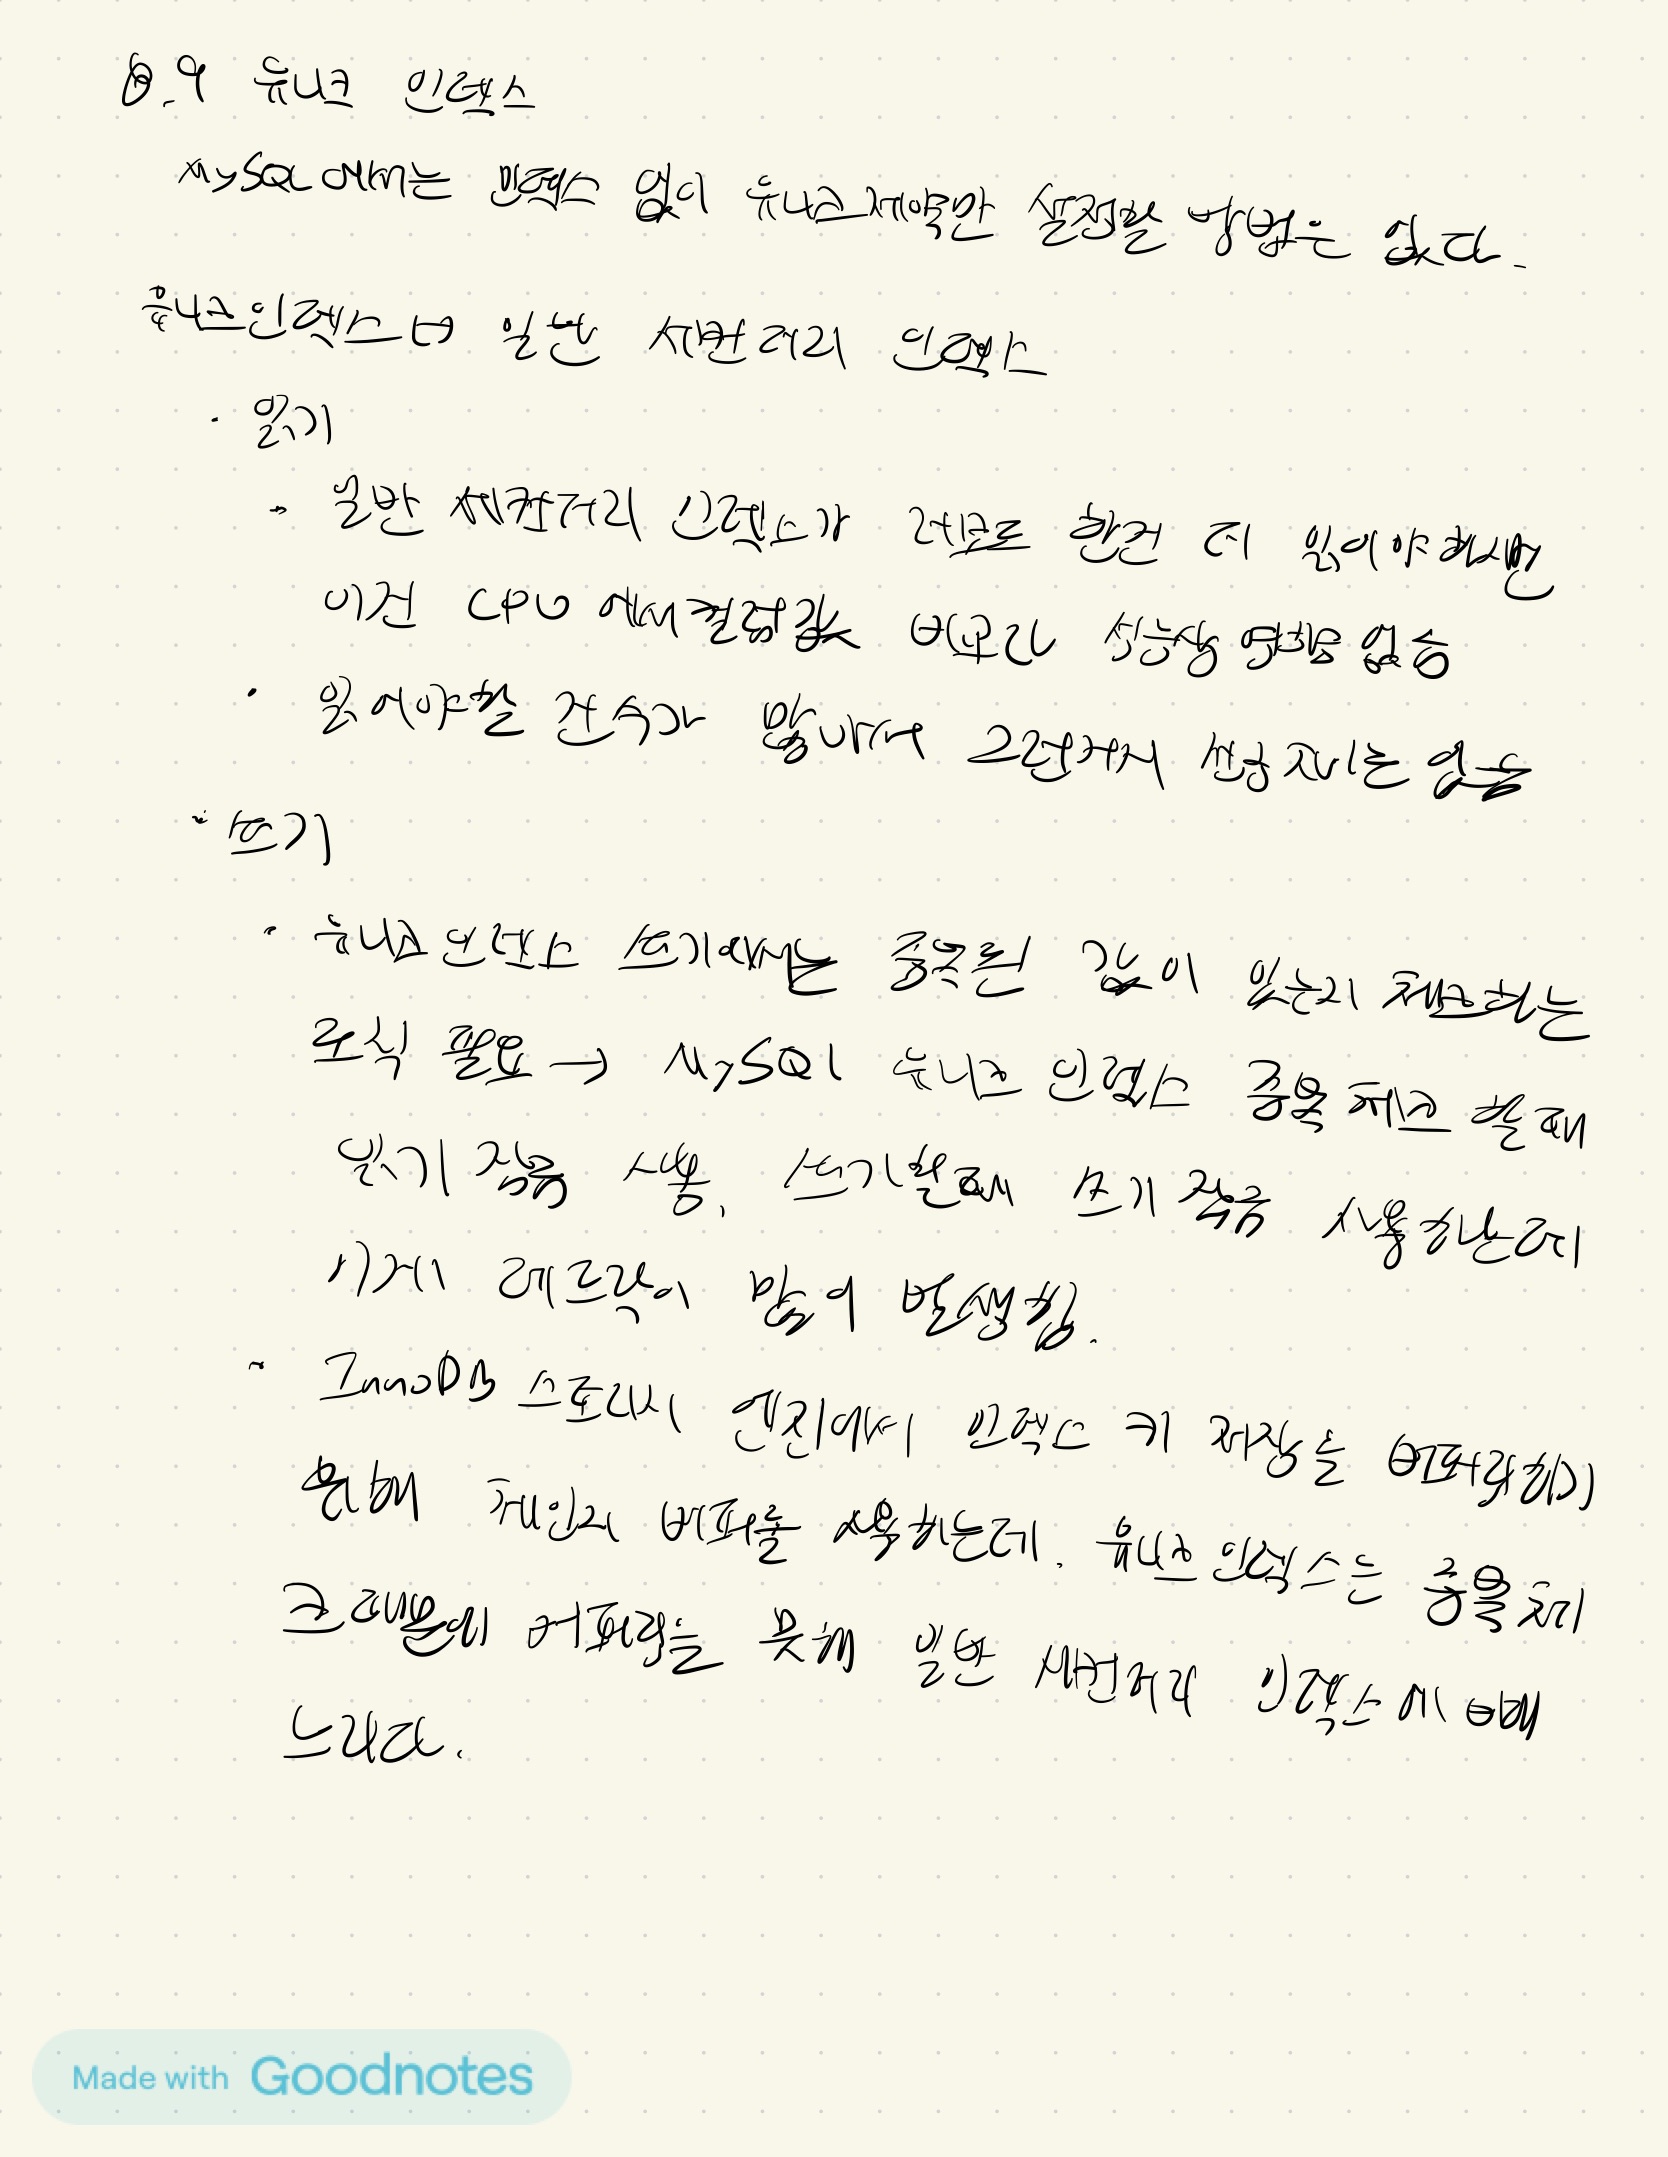 8.9 유니크 인덱스
MySQL에서는 인덱스 없이 유니크제약만 설정할 방법은 없다.
유니크인덱스 vs 일반 세컨더리 인덱스
· 읽기
- 일반 세컨더리 인덱스가 레코드 한건 더 읽어야하지만
이건 CPU에서 컬럼값 비교라 성능상 영향 없음
· 읽어야할 건수가 많아서 그런거지 성능 차이는 없음
· 쓰기
· 유니크 인덱스 쓰기에서는 중복된 값이 있는지 체크하는
로직 필요 → MySQL 유니크 인덱스 중복 체크 할때
읽기 잠금 사용, 쓰기할때 쓰기 잠금 사용하는데
이게 데드락이 많이 발생함.
- InnoDB 스토리지 엔진에서 인덱스 키 저장을 버퍼링하기
위해 체인지 버퍼를 사용하는데. 유니크 인덱스는 중복체
크때문에 버퍼링을 못해 일반 세컨더리 인덱스에 비해
느리다.
Made with Goodnotes